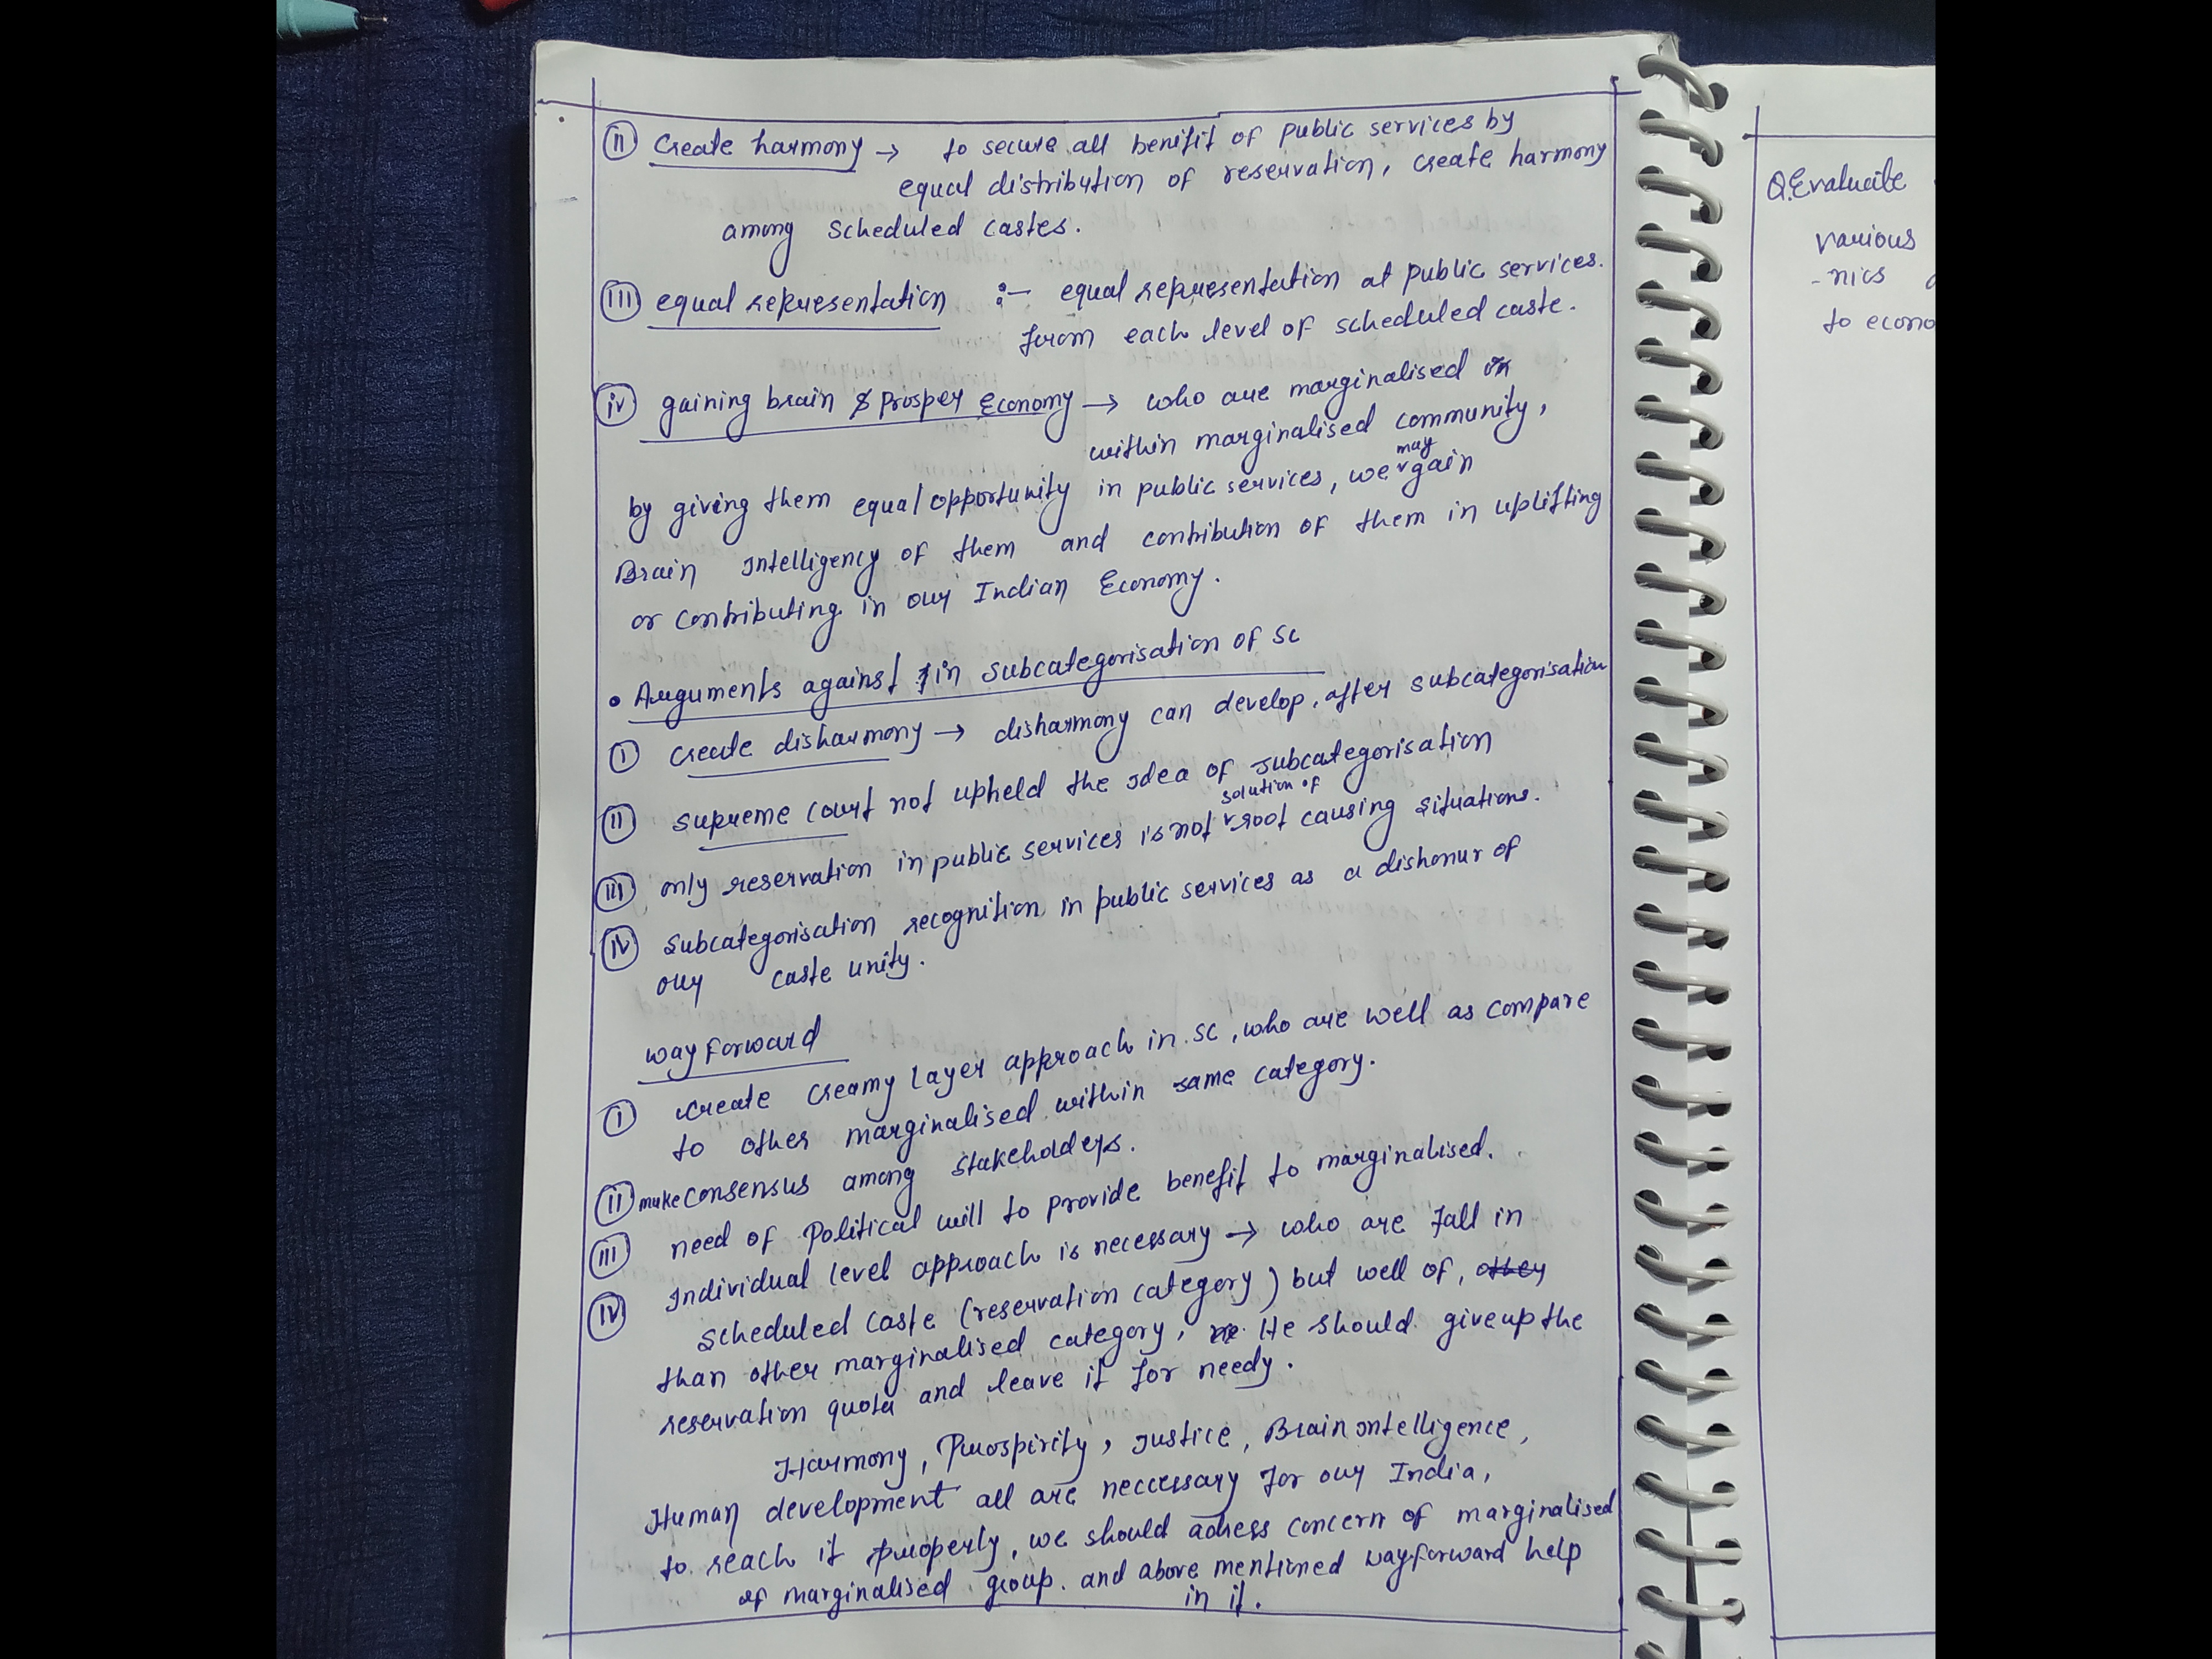 (ii) Create harmony → to secure all benifit of public services by
equal distribution of reservation, create harmony
among scheduled castes.
(iii) equal representation :- equal representation at public services.
from each level of scheduled caste.
(iv) gaining brain & prosper Economy → who are marginalised
within marginalised community,
by giving them equal opportunity in public services, we may gain
Brain Intelligency of them and contribution of them in uplifting
or contributing in our Indian Economy.
• Arguments against in subcategorisation of SC
(i) create disharmony → disharmony can develop, after subcategorisation
(ii) supreme court not upheld the idea of subcategorisation
(iii) only reservation in public services is not solution of root causing situations.
(iv) subcategorisation recognition in public services as a dishonur of
our caste unity.
way forward
(i) create creamy layer approach in SC, who are well as compare
to other marginalised within same category.
(ii) make consensus among stakeholders.
(iii) need of Political will to provide benefit to marginalised.
(iv) Individual level approach is necessary → who are fall in
scheduled caste (reservation category) but well of,
than other marginalised category, He should giveup the
reservation quota and leave it for needy.
Harmony, Prospirity, Justice, Brain intelligence,
Human development all are neccessary for our India,
to reach it properly, we should adress concern of marginalised
of marginalised group. and above mentioned wayforward help
in it.
Q. Evaluate
various
-nics
to econo